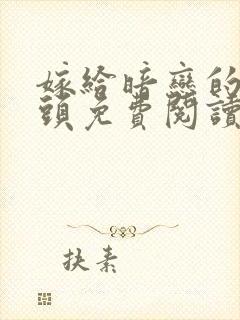 嫁給暗戀的
頭免費閱讀
扶素